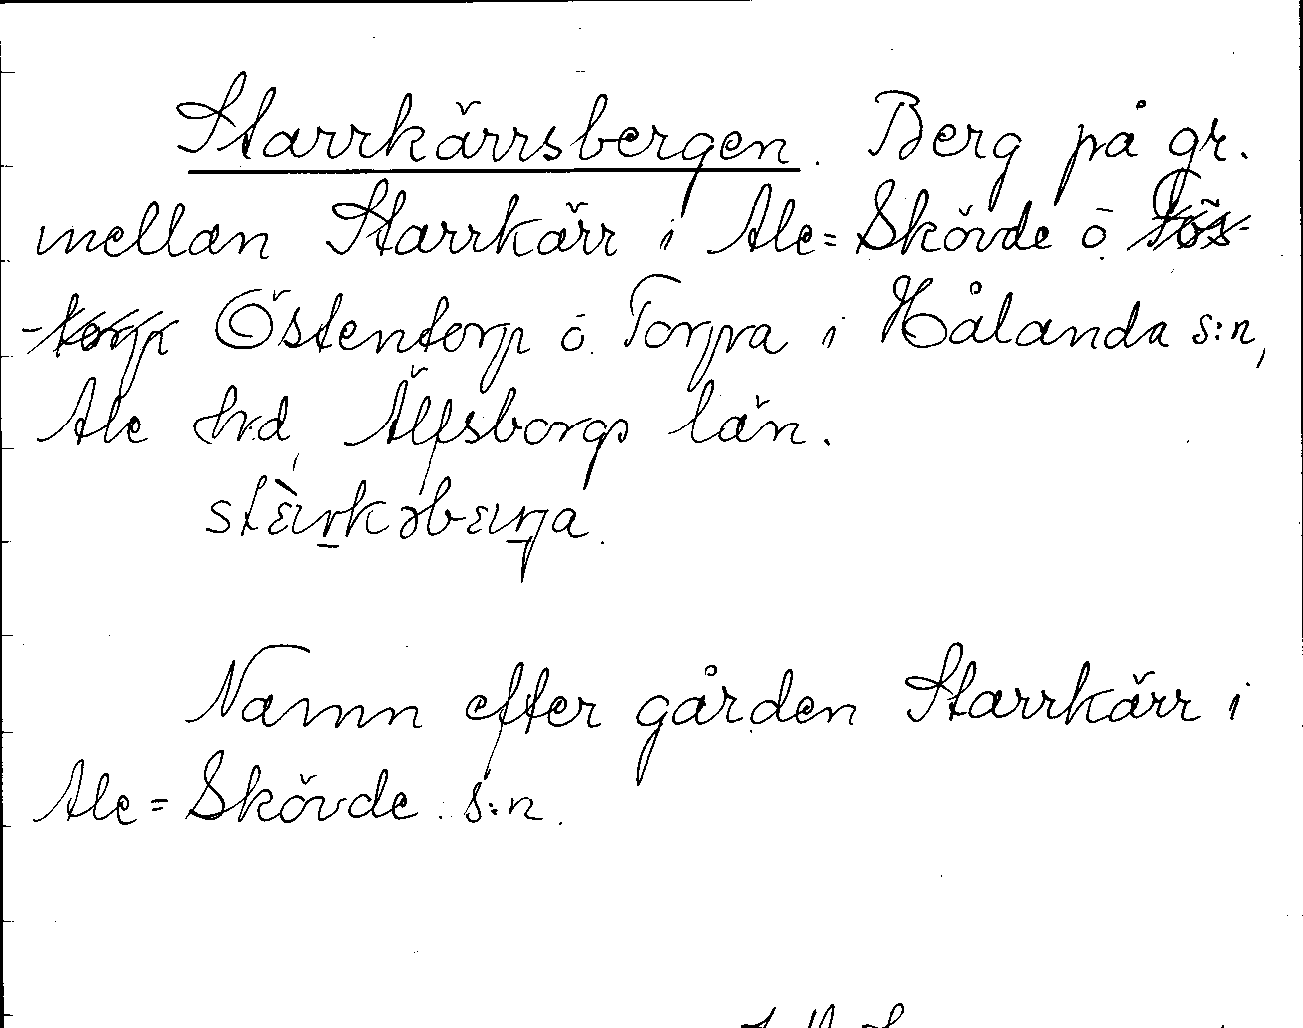 Starrkärrsbergen. Berg på gr.
mellan Starrkärr i Ale=Skövde o.
Östentorp o. Torpra i Hålanda s:n,
Ale hrd, Älfsborgs län.
Namn efter gården Starrkärr i
Ale=Skövde s:n.